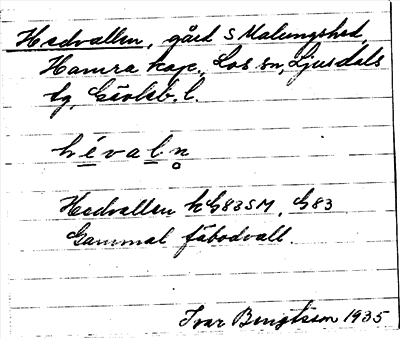 Hedvallen, gård S Malungshed,
Hamra kap., Los sn, Ljusdals
tg, Gävleb. l.
hévaln̥
Hedvallen hG83SM, G83
Gammal fäbodvall.
Ivar Bengtsson 1935